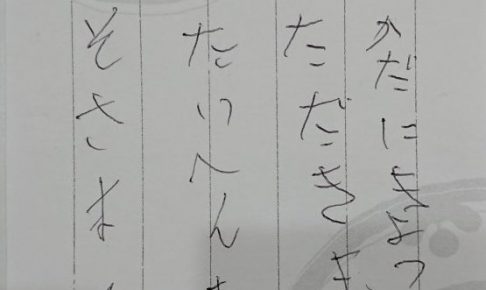 かだにきよつ
ただき
たいへん
そさま